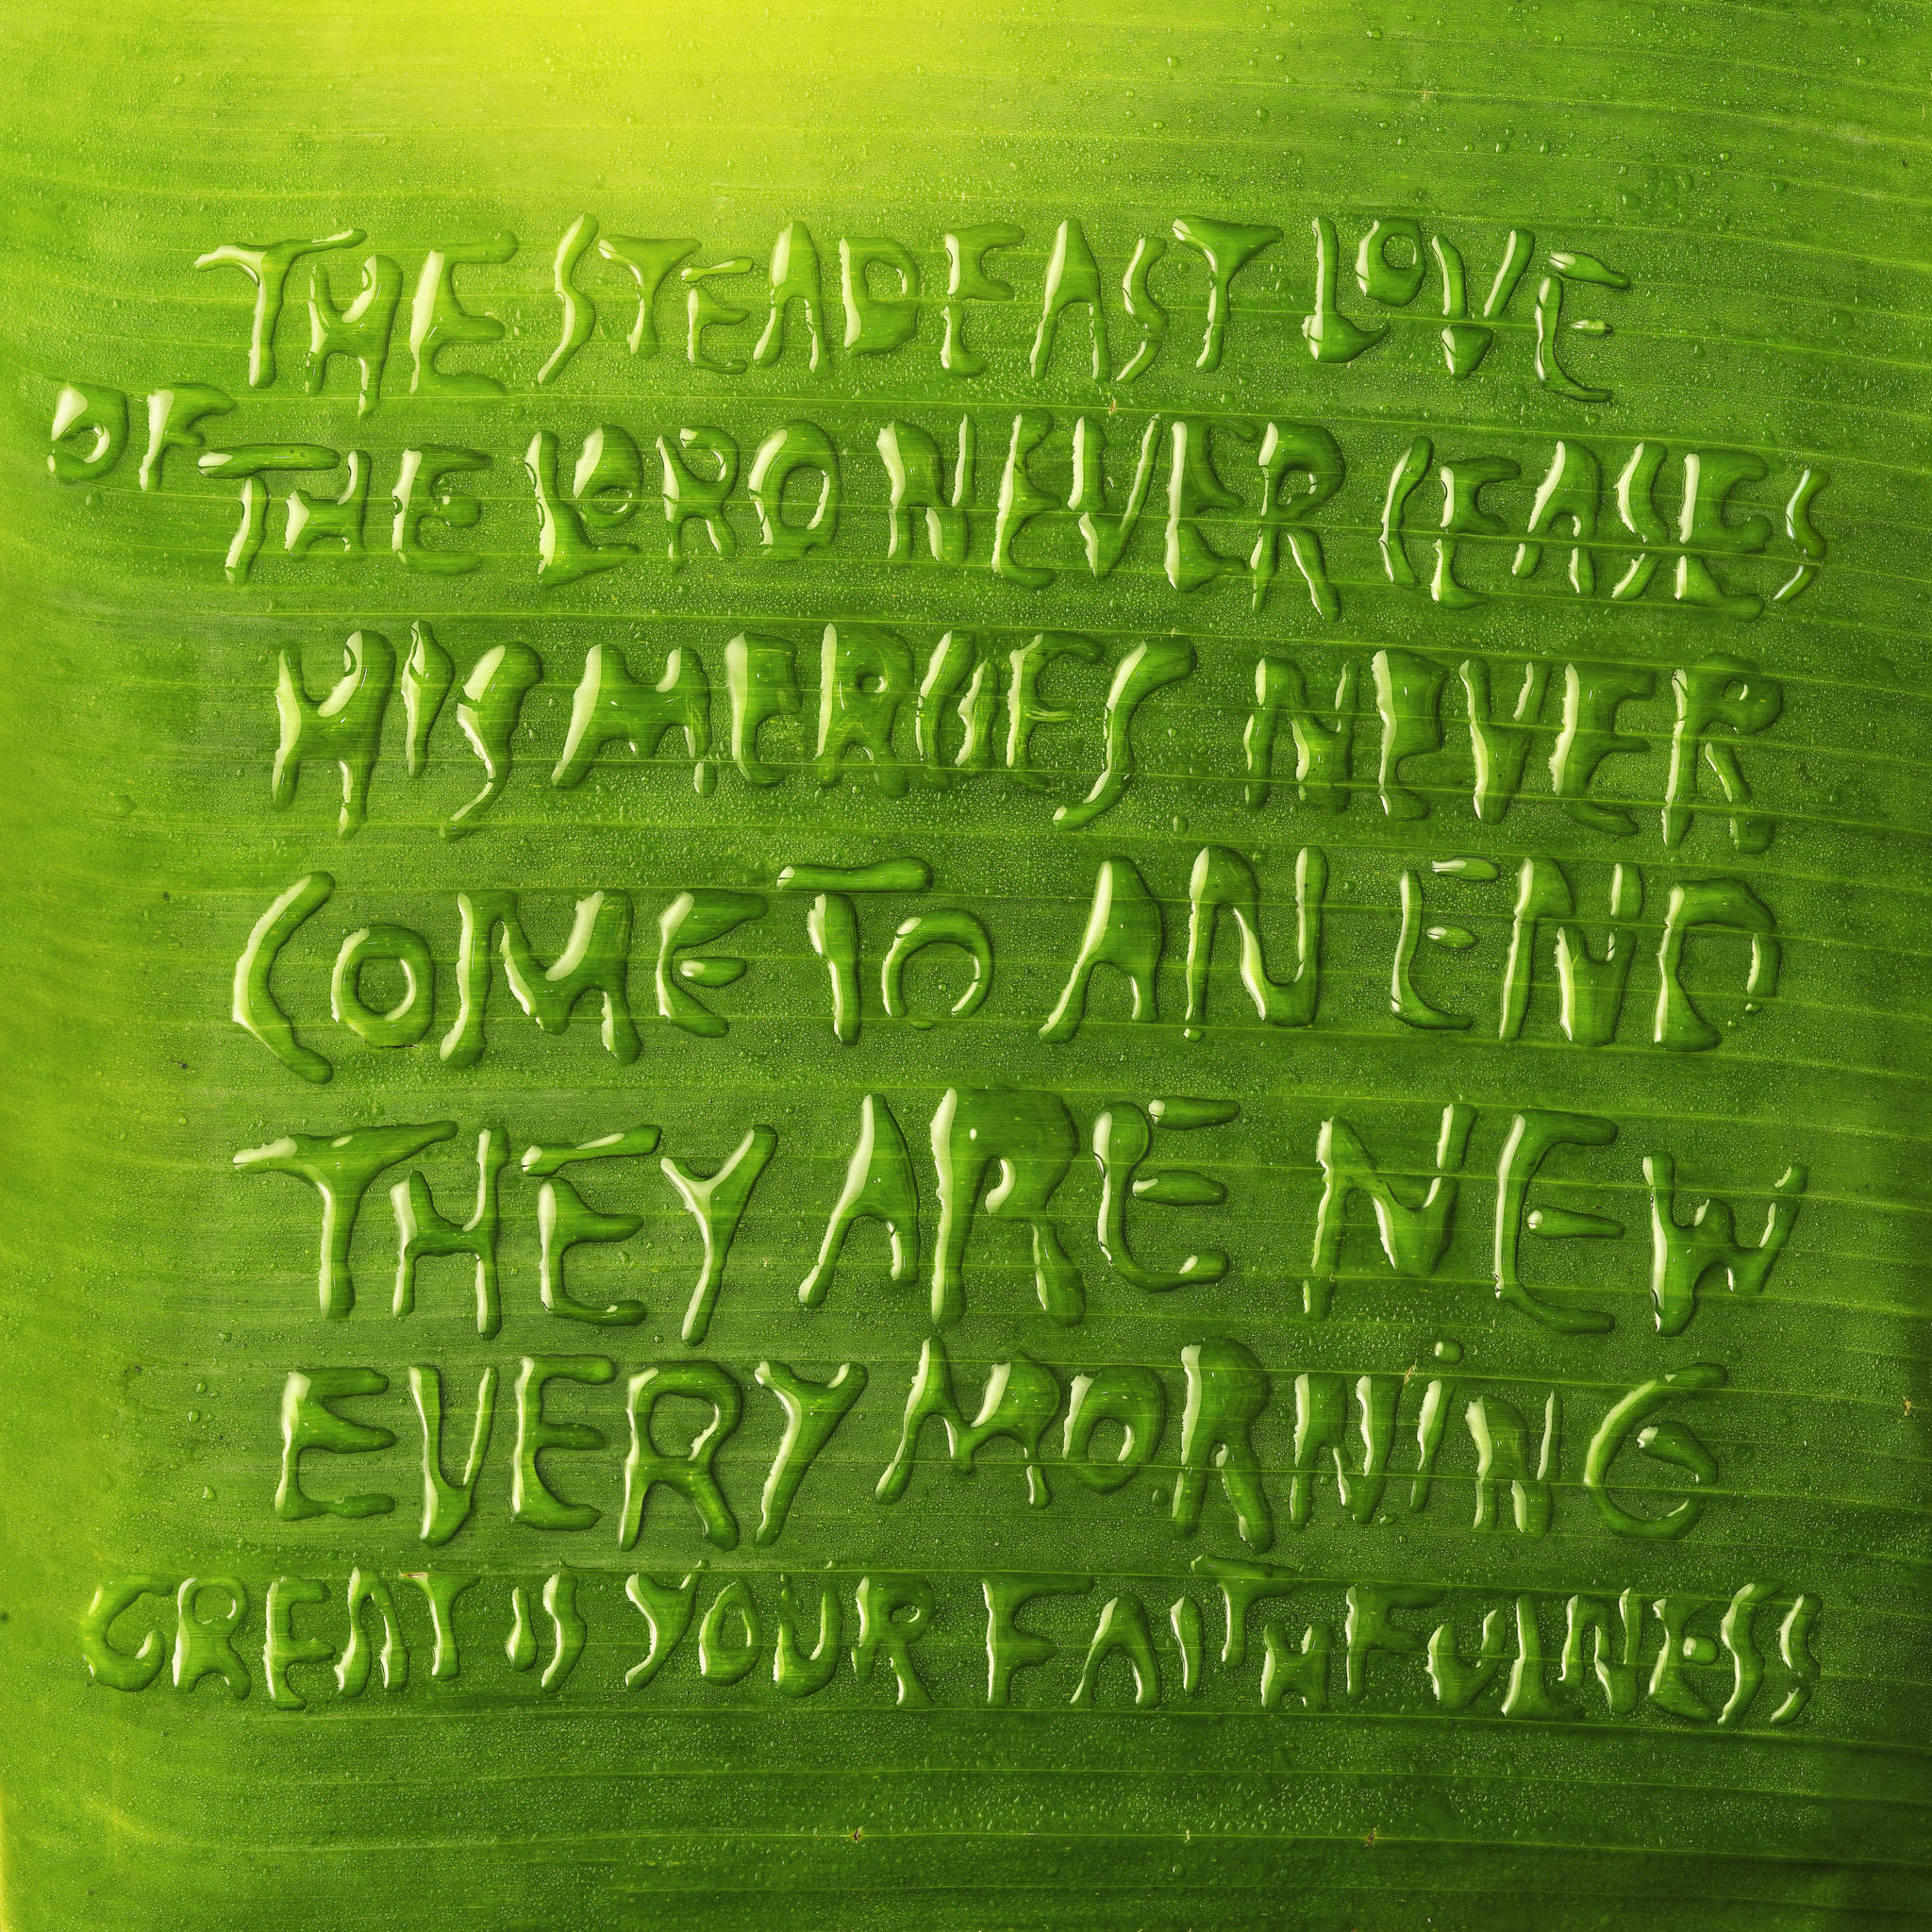 THE STEADFAST LOVE
OF THE LORD NEVER CEASES
HIS MERCIES NEVER
COME TO AN END
THEY ARE NEW
EVERY MORNiNG
GREAT IS YOUR FAITHFULNESS